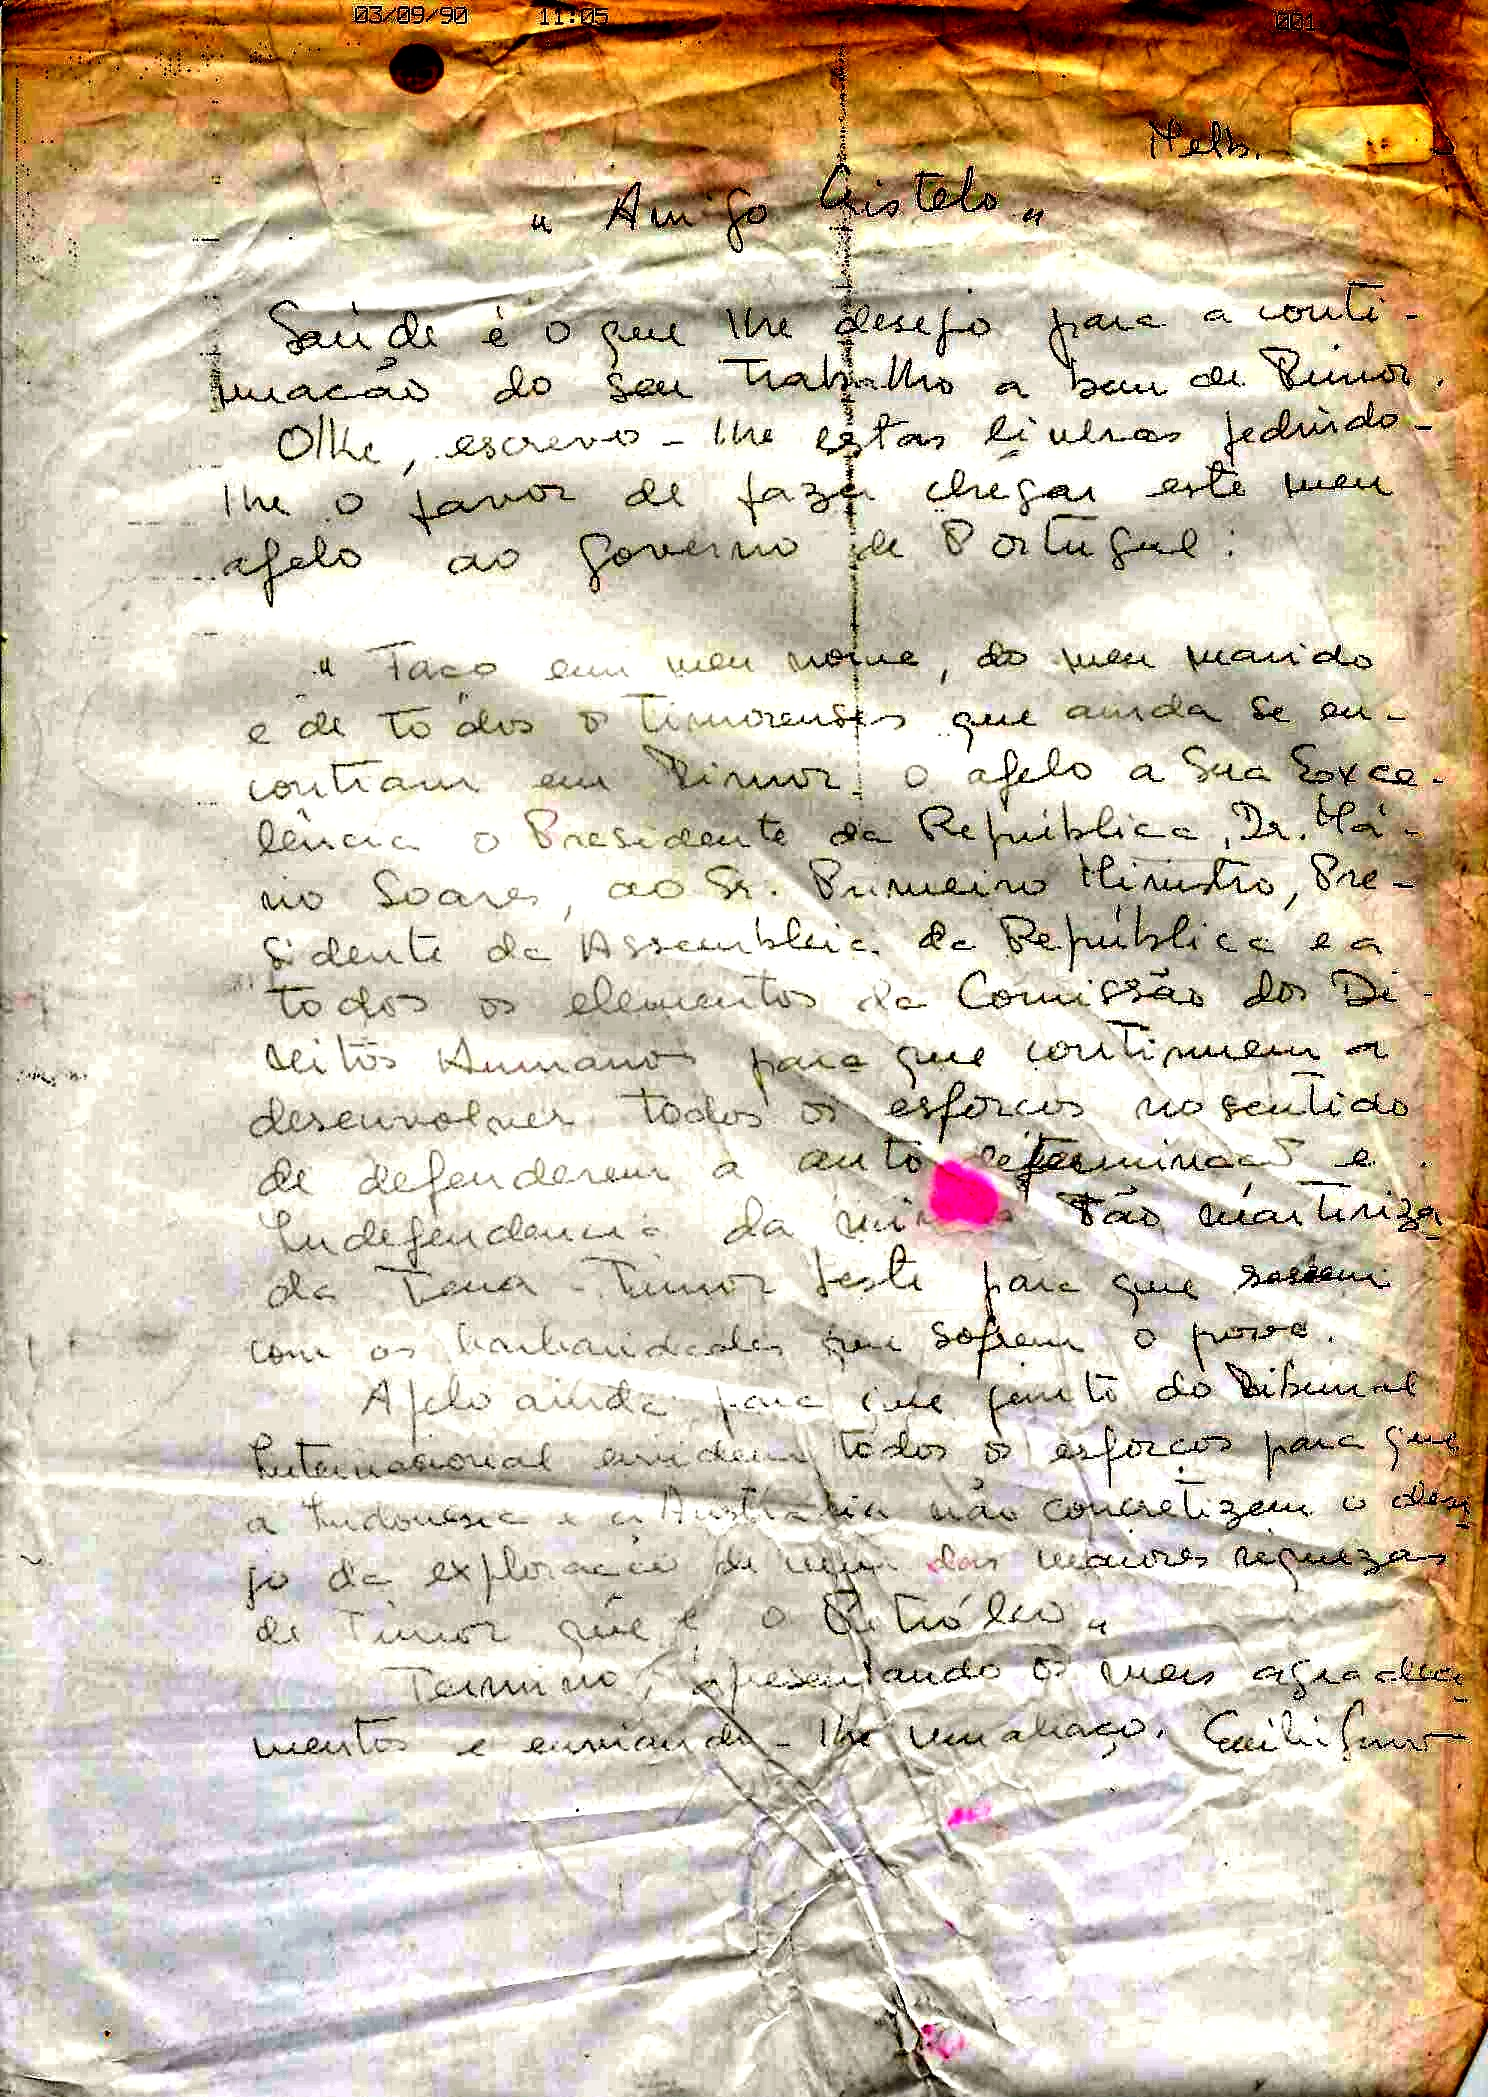 03/09/90 11:05 001
Melb.
" Amigo Cristelo "
Saúde é o que lhe desejo para a conti-
nuação do seu trabalho a bem de Timor.
Olhe, escrevo-lhe estas linhas pedindo-
lhe o favor de fazer chegar este meu
apelo ao governo de Portugal:
" Faço em meu nome, do meu marido
e de todos os timorenses que ainda se en-
contram em Timor o apelo a Sua Exce-
lência o Presidente da República, Dr. Má-
rio Soares, ao Sr. Primeiro Ministro, Pre-
sidente da Assembleia da República e a
todos os elementos da Comissão dos Di-
reitos Humanos para que continuem a
desenvolver todos os esforços no sentido
de defenderem a auto determinação e
Independencia da minha tão martiriza
da Terra - Timor Leste para que
com as barbaridades que sofrem o povo.
Apelo ainda para que junto do Tribunal
Internacional envidem todos os esforços para que
a Indonesia e a Australia não concretizem o dese
jo da exploração de uma das maiores riquezas
de Timor que é o Petróleo "
Termino, apresentando os meus agradeci
mentos e enviando-lhe um abraço.